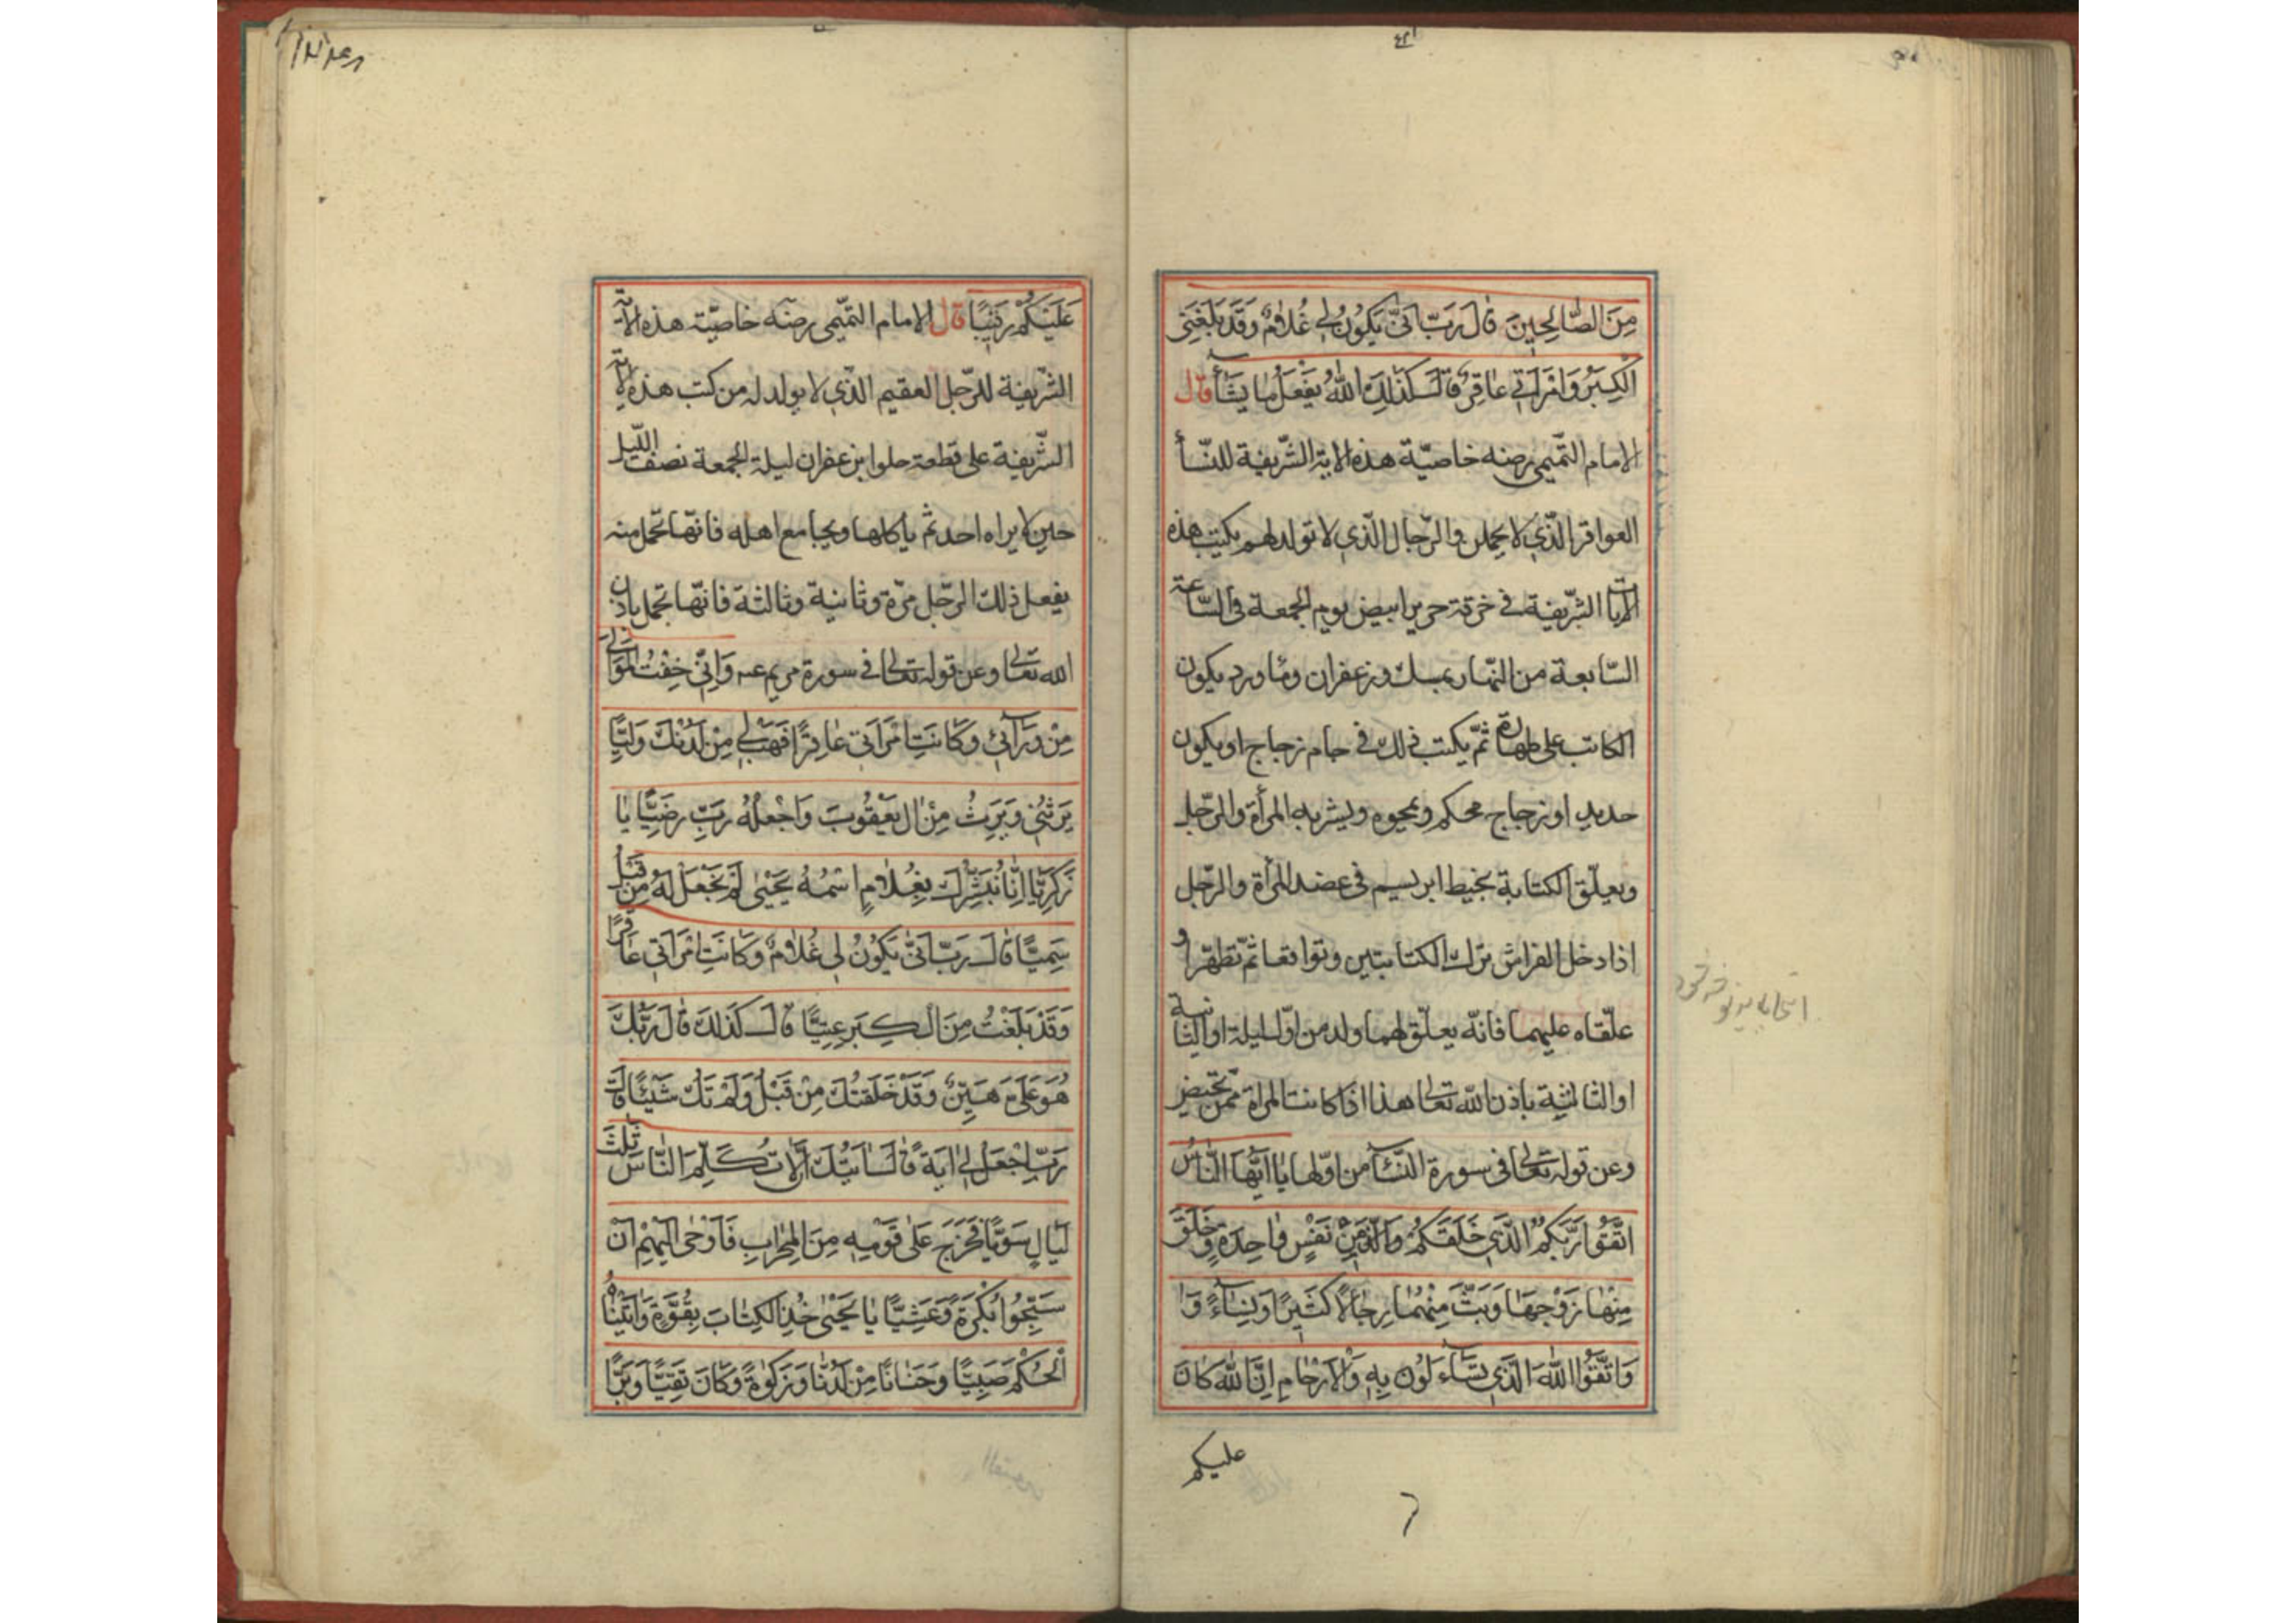 مِنَ الصَّالِحِينَ قَالَ رَبِّ اَنّٰى يَكُونُ لِي غُلَامٌ وَقَدْ بَلَغَنِيَ
الْكِبَرُ وَامْرَاَتِي عَاقِرٌ قَالَ كَذٰلِكَ اللّٰهُ يَفْعَلُ مَا يَشَآءُ قال
الامام التّميمى رضه خاصيّة هذه الاية الشّريفة للنّسأ
العواقر الّذي لا يحملن والرّجال الّذي لا تولد لهم يكتب هذه
الايات الشّريفة في خرقة حرير ابيض يوم الجمعة في السّاعة
السّابعة من النّهار بمسك وزعفران وماورد يكون
الكاتب على طهارة ثمّ يكتب ذلك في جام زجاج او يكون
حديد او زجاج محكم ويمحوه ويشربه المرأة والرّجل
ويعلّق الكتابة بخيط ابريسم في عضد المرأة والرّجل
اذا دخل الفراش ترك الكتابتين وتواقعا ثمّ تطهّرا و
علّقاه عليهما فانّه يعلّق لهما ولد من اوّل ليلة او الثّانية
او الثالثة باذن الله تعالى هذا اذا كانت المرأة ممّن تحيض
وعن قوله تعالى في سورة النّسآ من اوّلها يَا اَيُّهَا النَّاسُ
اتَّقُوا رَبَّكُمُ الَّذِي خَلَقَكُمْ مِنْ نَفْسٍ وَاحِدَةٍ وَخَلَقَ
مِنْهَا زَوْجَهَا وَبَثَّ مِنْهُمَا رِجَالًا كَثِيرًا وَنِسَآءً وَا
وَاتَّقُوا اللّٰهَ الَّذِي تَسَآءَلُونَ بِهِ وَالْاَرْحَامَ اِنَّ اللّٰهَ كَانَ
عليكم
عَلَيْكُمْ رَقِيبًا قال الامام التّميمى رضه خاصيّة هذه الاية
الشّريفة للرّجل العقيم الّذي لا يولد له من كتب هذه الاية
الشّريفة على قطعة حلوا بزعفران ليلة الجمعة نصف اللّيل
حين لا يراه احد ثم يأكلها ويجامع اهله فانّها تحمل منه
يفعل ذلك الرّجل مرّة وثانية وثالثة فانّها تحمل باذن
الله تعالى وعن قوله تعالى في سورة مريم عه وَاِنِّي خِفْتُ الْمَوَالِيَ
مِنْ وَرَآئِي وَكَانَتِ امْرَاَتِي عَاقِرًا فَهَبْ لِي مِنْ لَدُنْكَ وَلِيًّا
يَرِثُنِي وَيَرِثُ مِنْ اٰلِ يَعْقُوبَ وَاجْعَلْهُ رَبِّ رَضِيًّا يَا
زَكَرِيَّا اِنَّا نُبَشِّرُكَ بِغُلَامٍ اسْمُهُ يَحْيٰى لَمْ نَجْعَلْ لَهُ مِنْ قَبْلُ
سَمِيًّا قَالَ رَبِّ اَنّٰى يَكُونُ لِي غُلَامٌ وَكَانَتِ امْرَاَتِي عَاقِرًا
وَقَدْ بَلَغْتُ مِنَ الْكِبَرِ عِتِيًّا قَالَ كَذٰلِكَ قَالَ رَبُّكَ
هُوَ عَلَيَّ هَيِّنٌ وَقَدْ خَلَقْتُكَ مِنْ قَبْلُ وَلَمْ تَكُ شَيْئًا قَالَ
رَبِّ اجْعَلْ لِي اٰيَةً قَالَ اٰيَتُكَ اَلَّا تُكَلِّمَ النَّاسَ ثَلٰثَ
لَيَالٍ سَوِيًّا فَخَرَجَ عَلٰى قَوْمِهِ مِنَ الْمِحْرَابِ فَاَوْحٰى اِلَيْهِمْ اَنْ
سَبِّحُوا بُكْرَةً وَعَشِيًّا يَا يَحْيٰى خُذِ الْكِتَابَ بِقُوَّةٍ وَاٰتَيْنَاهُ
الْحُكْمَ صَبِيًّا وَحَنَانًا مِنْ لَدُنَّا وَزَكٰوةً وَكَانَ تَقِيًّا وَبَرًّا